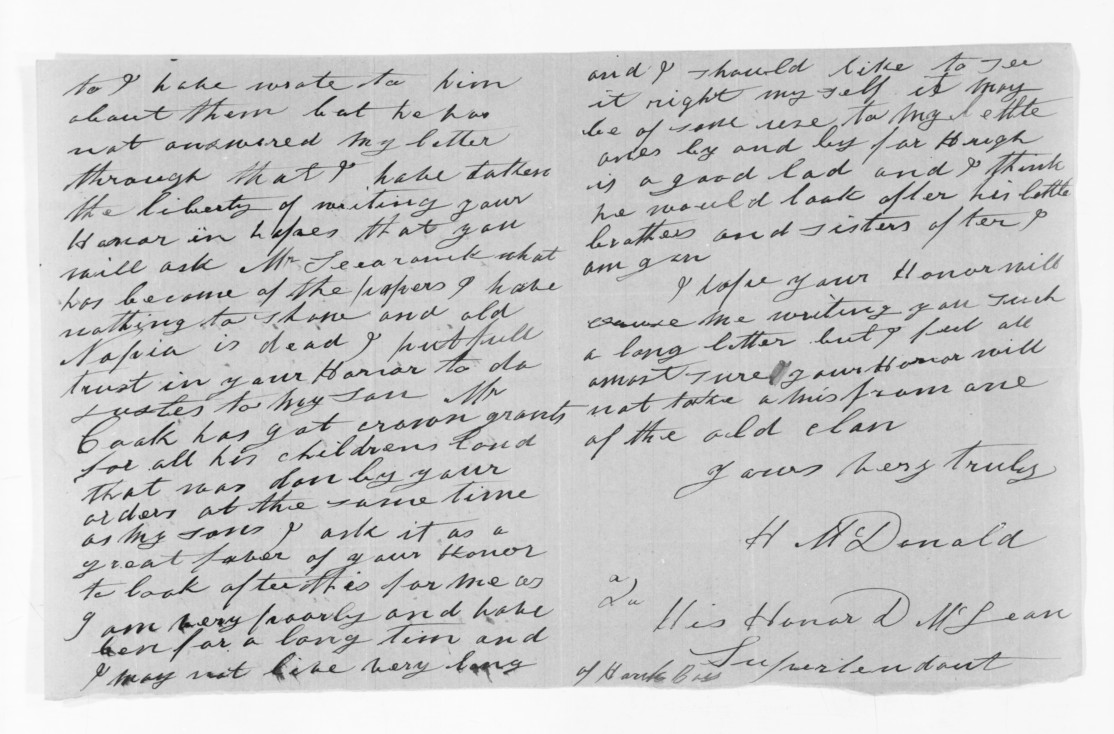 to I have wrote to him
about them but he has
not answered my letter
through that I have taken
the liberty of writing your
Honor in hopes that you
will ask Mr what
has become of the papers I have
nothing to show and old
Napia is dead I put full
trust in your Honor to do
justes to my son Mr
Cook has got crown grants
for all his childrens land
that was don by your
orders at the same time
as my sons I ask it as a
great faver of your Honor
to look after this for me as
I am very poorly and have
ben for a long tim and
I may not live very long
and I should like to see
it right my self it may
be of some use to my lettle
ones by and by for Hugh
is a good lad and I think
he would look after his lettle
brothers and sisters after I
am gon
I hope your Honor will
me writing you such
a long letter but I feel all
amost sure your Honor will
not take amis from one
of the old clan
yours very truly
H McDonald
To
His Honor D McLean
Supertendant
of Hawk Bay